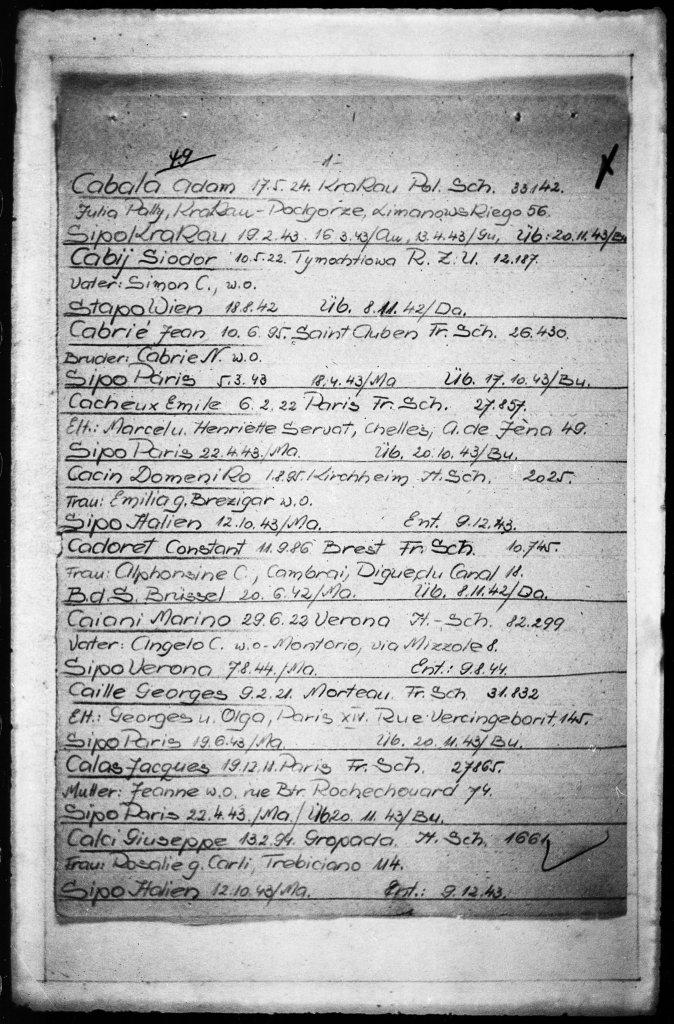 49
1-
Cabala Adam 17.5.24. Krakau Pol. Sch. 33142.
Julia Pally, Krakau-Podgorze, Limanowskiego 56.
Sipo Krakau 19.2.43. 16.3.43/Au, 13.4.43/Gu, Üb: 20.11.43/Bu
Cabij Siodor 10.5.22. Tymochtiowa R.Z.U. 12.187.
Vater: Simon C., w.o.
Stapo Wien 18.8.42 Üb. 8.11.42/Da.
Cabrié Jean 10.6.95. Saint Auben Fr. Sch. 26.430.
Bruder: Cabrie N. w.o.
Sipo Paris 5.3.43 18.4.43/Ma Üb. 17.10.43/Bu.
Cacheux Emile 6.2.22 Paris Fr. Sch. 27.857.
Elt.: Marcel u. Henriette Servat, Chelles, A. de Jèna 49.
Sipo Paris 22.4.43./Ma. Üb. 20.10.43/Bu.
Cacin Domeniko 1.8.95. Kirchheim It. Sch. 2025.
Frau: Emilia g. Brezigar w.o.
Sipo Italien 12.10.43/Ma. Ent. 9.12.43.
Cadoret Constant 11.9.86 Brest Fr. Sch. 10.745.
Frau: Alphonsine C., Cambrai, Digue du Canal 18.
B.d.S. Brüssel 20.6.42/Ma. Üb. 8.11.42/Da.
Caiani Marino 29.6.22 Verona It.-Sch. 82.299
Vater: Angelo C. w.o.-Montorio, via Mizzole 8.
Sipo Verona 7.8.44./Ma. Ent.: 9.8.44.
Caille Georges 9.2.21. Morteau. Fr. Sch 31.832
Elt.: Georges u. Olga, Paris XIV. Rue Vercingeborit, 145.
Sipo Paris 19.6.43/Ma Üb. 20.11.43/Bu.
Calas Jacques 19.12.11. Paris Fr. Sch. 27865.
Mutter: Jeanne w.o. rue Btr. Rochechouard 74.
Sipo Paris 22.4.43./Ma./ Üb 20.11.43/Bu.
Calci Giuseppe 13.2.94. Gropada. It. Sch. 1661
Frau: Rosalie g. Carli, Trebiciano 114.
Sipo Italien 12.10.43/Ma. Ent.: 9.12.43.